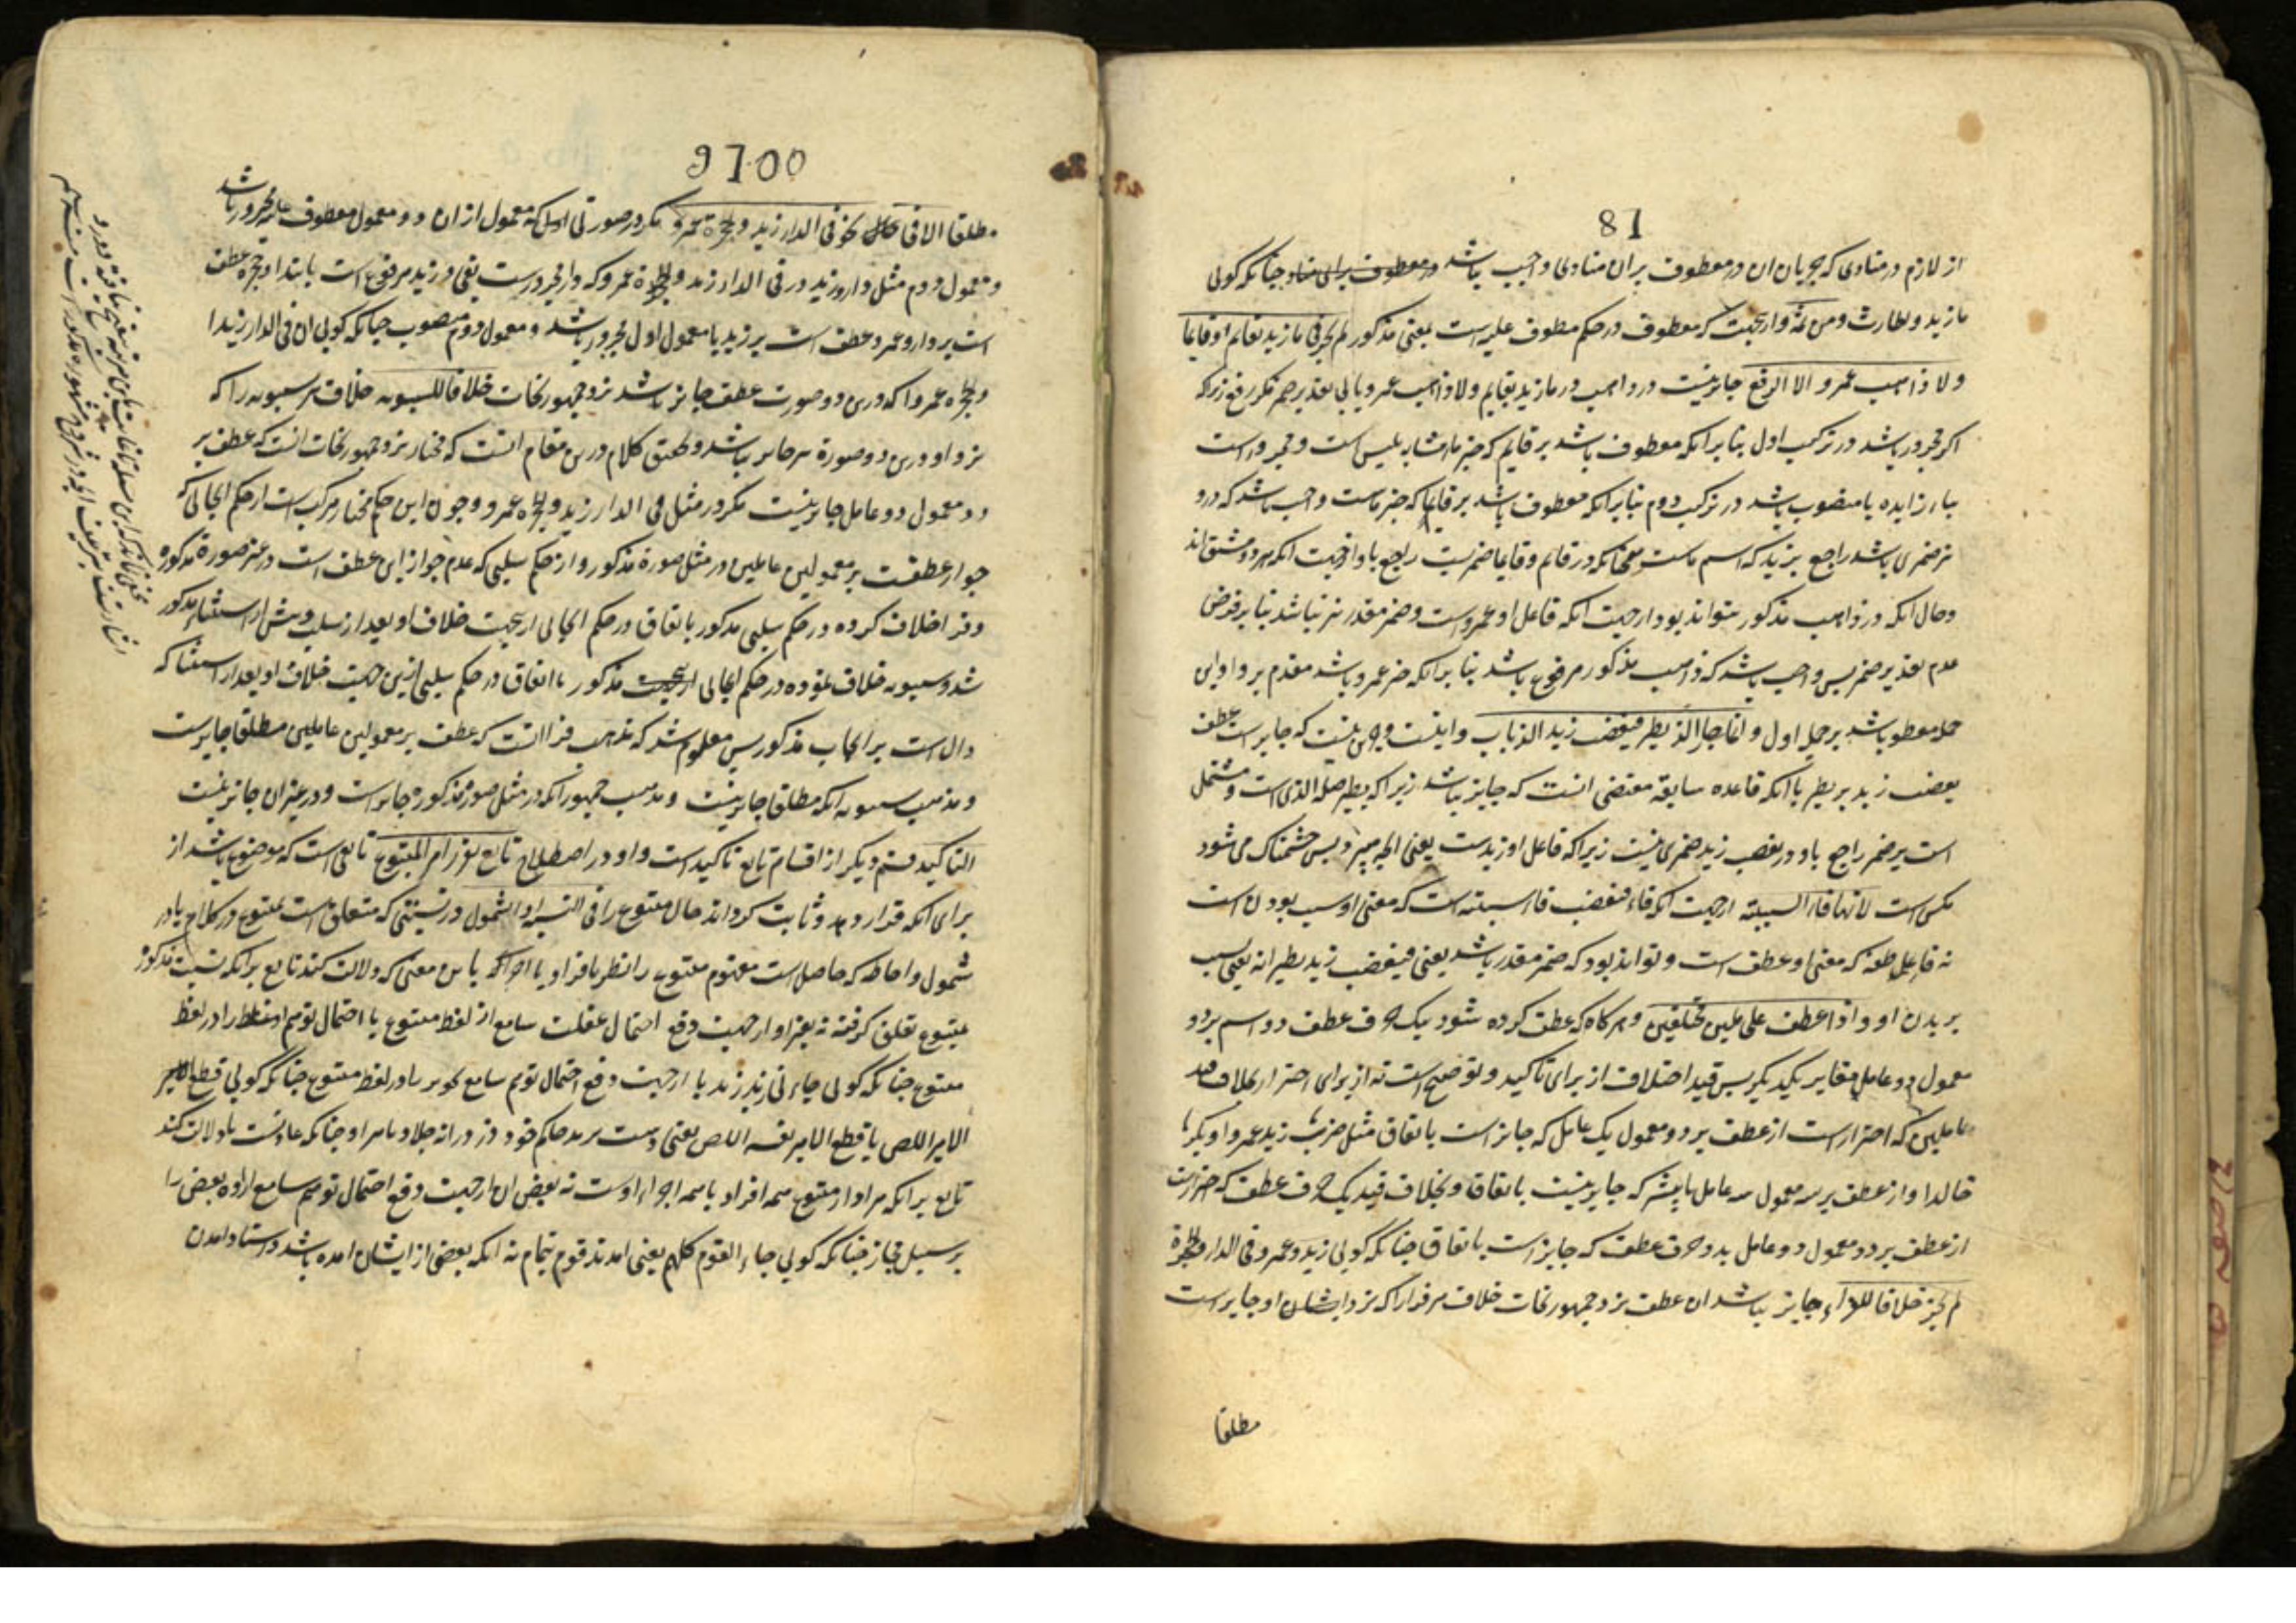 81
از لازم در منادی که بجریان ان در معطوف بران منادی واجب باشد در معطوف برای مناد چنانکه کوئی
ما زید و از ینجهت که معطوف در حکم معطوف علیه است بمعنی مذکور لم یجز فی ما زید بقائم او قایما
ولا ذاهب عمرو الا الرفع جایز نیست در ذاهب در ما زید بقایم ولا ذاهب عمرو یا بی تقدیر ضم مکر رفع زیراکه
اکر مجرور باشد در ترکیب اول بنا برانکه معطوف باشد بر قایم که خبر ما مشابه بلیس است و مجرور است
بباء زایده یا منصوب باشد در ترکیب دوم بنا برانکه معطوف باشد بر قایما که خبر ماست واجب باشد که درو
نیز ضمیری باشد راجع بزید که اسم ماست همچنانکه در قایم و قایما ضمیریست راجع باو از جهت انکه هر دو مشتق اند
و حال انکه در ذاهب مذکور نتواند بود از جهت انکه فاعل او عمرو است و ضمیر مقدر نیز نباشد بنا بر فرض
عدم تقدیر ضمیر پس واجب باشد که ذاهب مذکور مرفوع باشد بنا برانکه خبر عمرو باشد مقدم برو و این
جمله معطوف باشد بر جمله اول و انما جاز الذی یطیر فیغضب زید الذباب و اینست و جز این نیست که جایز است عطف
یغضب زید بر یطیر با انکه قاعده سابقه مقتضی انست که جایز نباشد زیراکه یطیر صله الذی است و مشتمل
است بر ضمیر راجع باو و در یغضب زید ضمیری نیست زیراکه فاعل او زیدست یعنی انچه میپرد پس خشمناک می شود
مکس است لانها فاء السببیة از جهت انکه فاء فیغضب فاء سببیه است که معنی او سبب بودن است
نه فاء عاطفه که معنی او عطف است و تواند بود که ضمیر مقدر باشد یعنی فیغضب زید بطیرانه یعنی بسبب
پریدن او و اذا عطف علی عاملین مختلفین و هرکاه که عطف کرده شود بیک حرف عطف دو اسم بر دو
معمول دو عامل مغایر یکدیکر پس قید اختلاف از برای تاکید و توضیح است نه از برای احتراز بخلاف قید
عاملین که احتراز است از عطف بر دو معمول یک عامل که جایز است باتفاق مثل ضرب زید عمروا و بکر
خالدا و از عطف بر سه معمول سه عامل یا بیشتر که جایز نیست باتفاق و بخلاف قید یک حرف عطف که احتراز است
از عطف بر دو معمول دو عامل بدو حرف عطف که جایز است باتفاق چنانکه کوئی زید و عمرو فی الدار و الحجرة
لم یجز خلافا للفراء جایز نباشد ان عطف نزد جمهور نحات خلاف مر فرا را که نزد ایشان او جایز است
مطلقا
9700
مطلقا الا فی نحو فی الدار زید و الحجرة عمرو مکر در صورتی که معمول از ان دو معمول معطوف علیه مجرور باشد
و معمول دوم مثل دار و زید در فی الدار زید و الحجرة عمرو که دار مجرورست بفی و زید مرفوع است بابتدا و حجره عطف
است بر دار و عمرو عطف است بر زید یا معمول اول مجرور باشد و معمول دوم منصوب چنانکه کوئی ان فی الدار زیدا
و الحجرة عمروا که درین دو صورت عطف جایز باشد نزد جمهور نحات خلافا لسیبویه خلاف مر سیبویه را که
نزد او درین دو صورة نیز جایز نباشد و تحقیق کلام درین مقام انست که مختار نزد جمهور نحات انست که عطف بر
دو معمول دو عامل جایز نیست مکر در مثل فی الدار زید و الحجرة عمرو و چون این حکم مختار مرکب است از حکم ایجابی که
جواز عطفست بر معمولین عاملین در مثل صورة مذکور و از حکم سلبی که عدم جواز این عطف است در غیر صورة مذکوره
و فرا خلاف کرده در حکم سلبی مذکور باتفاق در حکم ایجابی از ینجهت خلاف او بعد از سلب و پیش از استثناء مذکور
شد و سیبویه خلاف نموده در حکم ایجابی مذکور با اتفاق در حکم سلبی ازین جهت خلاف او بعد از استثنا که
دال است بر ایجاب مذکور پس معلوم شد که مذهب فرا انست که عطف بر معمولین عاملین مطلقا جایزست
و مذهب سیبویه انکه مطلقا جایز نیست و مذهب جمهور انکه در مثل صور مذکوره جایز است و در غیر ان جایز نیست
التاکید قسم دیکر از اقسام تابع تاکید است و او در اصطلاح تابع یقرر امر المتبوع تابعی است که موضوع باشد از
برای انکه قرار دهد و ثابت کرداند حال متبوع را فی النسبة او الشمول در نسبتی که متعلق است بمتبوع در کلام یا در
شمول و احاطه که حاصل است مفهوم متبوع را نظر بافراد یا اجزاء باین معنی که دلالت کند تابع برانکه نسبت مذکوره
بمتبوع تعلق کرفته نه بغیر او از جهت دفع احتمال غفلت سامع از لفظ متبوع یا احتمال توهم او غلط را در لفظ
متبوع چنانکه کوئی جاءنی زید زید یا از جهت دفع احتمال توهم سامع تجوز را در لفظ متبوع چنانکه کوئی قطع الامیر
الامیر اللص یا قطع الامیر نفسه اللص یعنی دست برید حاکم خود دزد را نه جلاد بامر او چنانکه عادتست یا دلالت کند
تابع برانکه مراد از متبوع همه افراد یا همه اجزاء اوست نه بعض ان از جهت دفع احتمال توهم سامع اراده بعض را
بر سبیل مجاز چنانکه کوئی جاء القوم کلهم یعنی امدند قوم تمام نه انکه بعضی از ایشان امده باشد و اسناد امدن